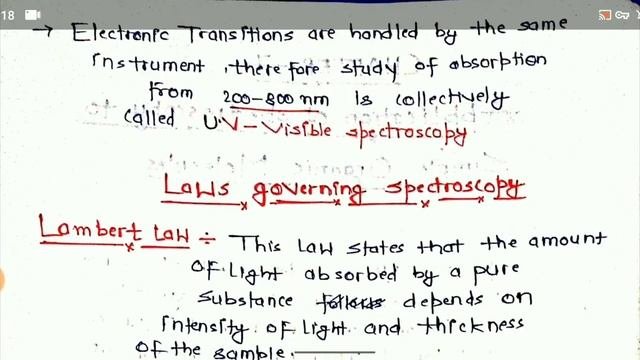 18
→ Electronic Transitions are handled by the same
instrument, therefore study of absorption
from 200-800 nm is collectively
called UV-Visible spectroscopy
Laws governing spectroscopy
Lambert Law ÷ This law states that the amount
of light absorbed by a pure
substance depends on
intensity of light and thickness
of the sample.